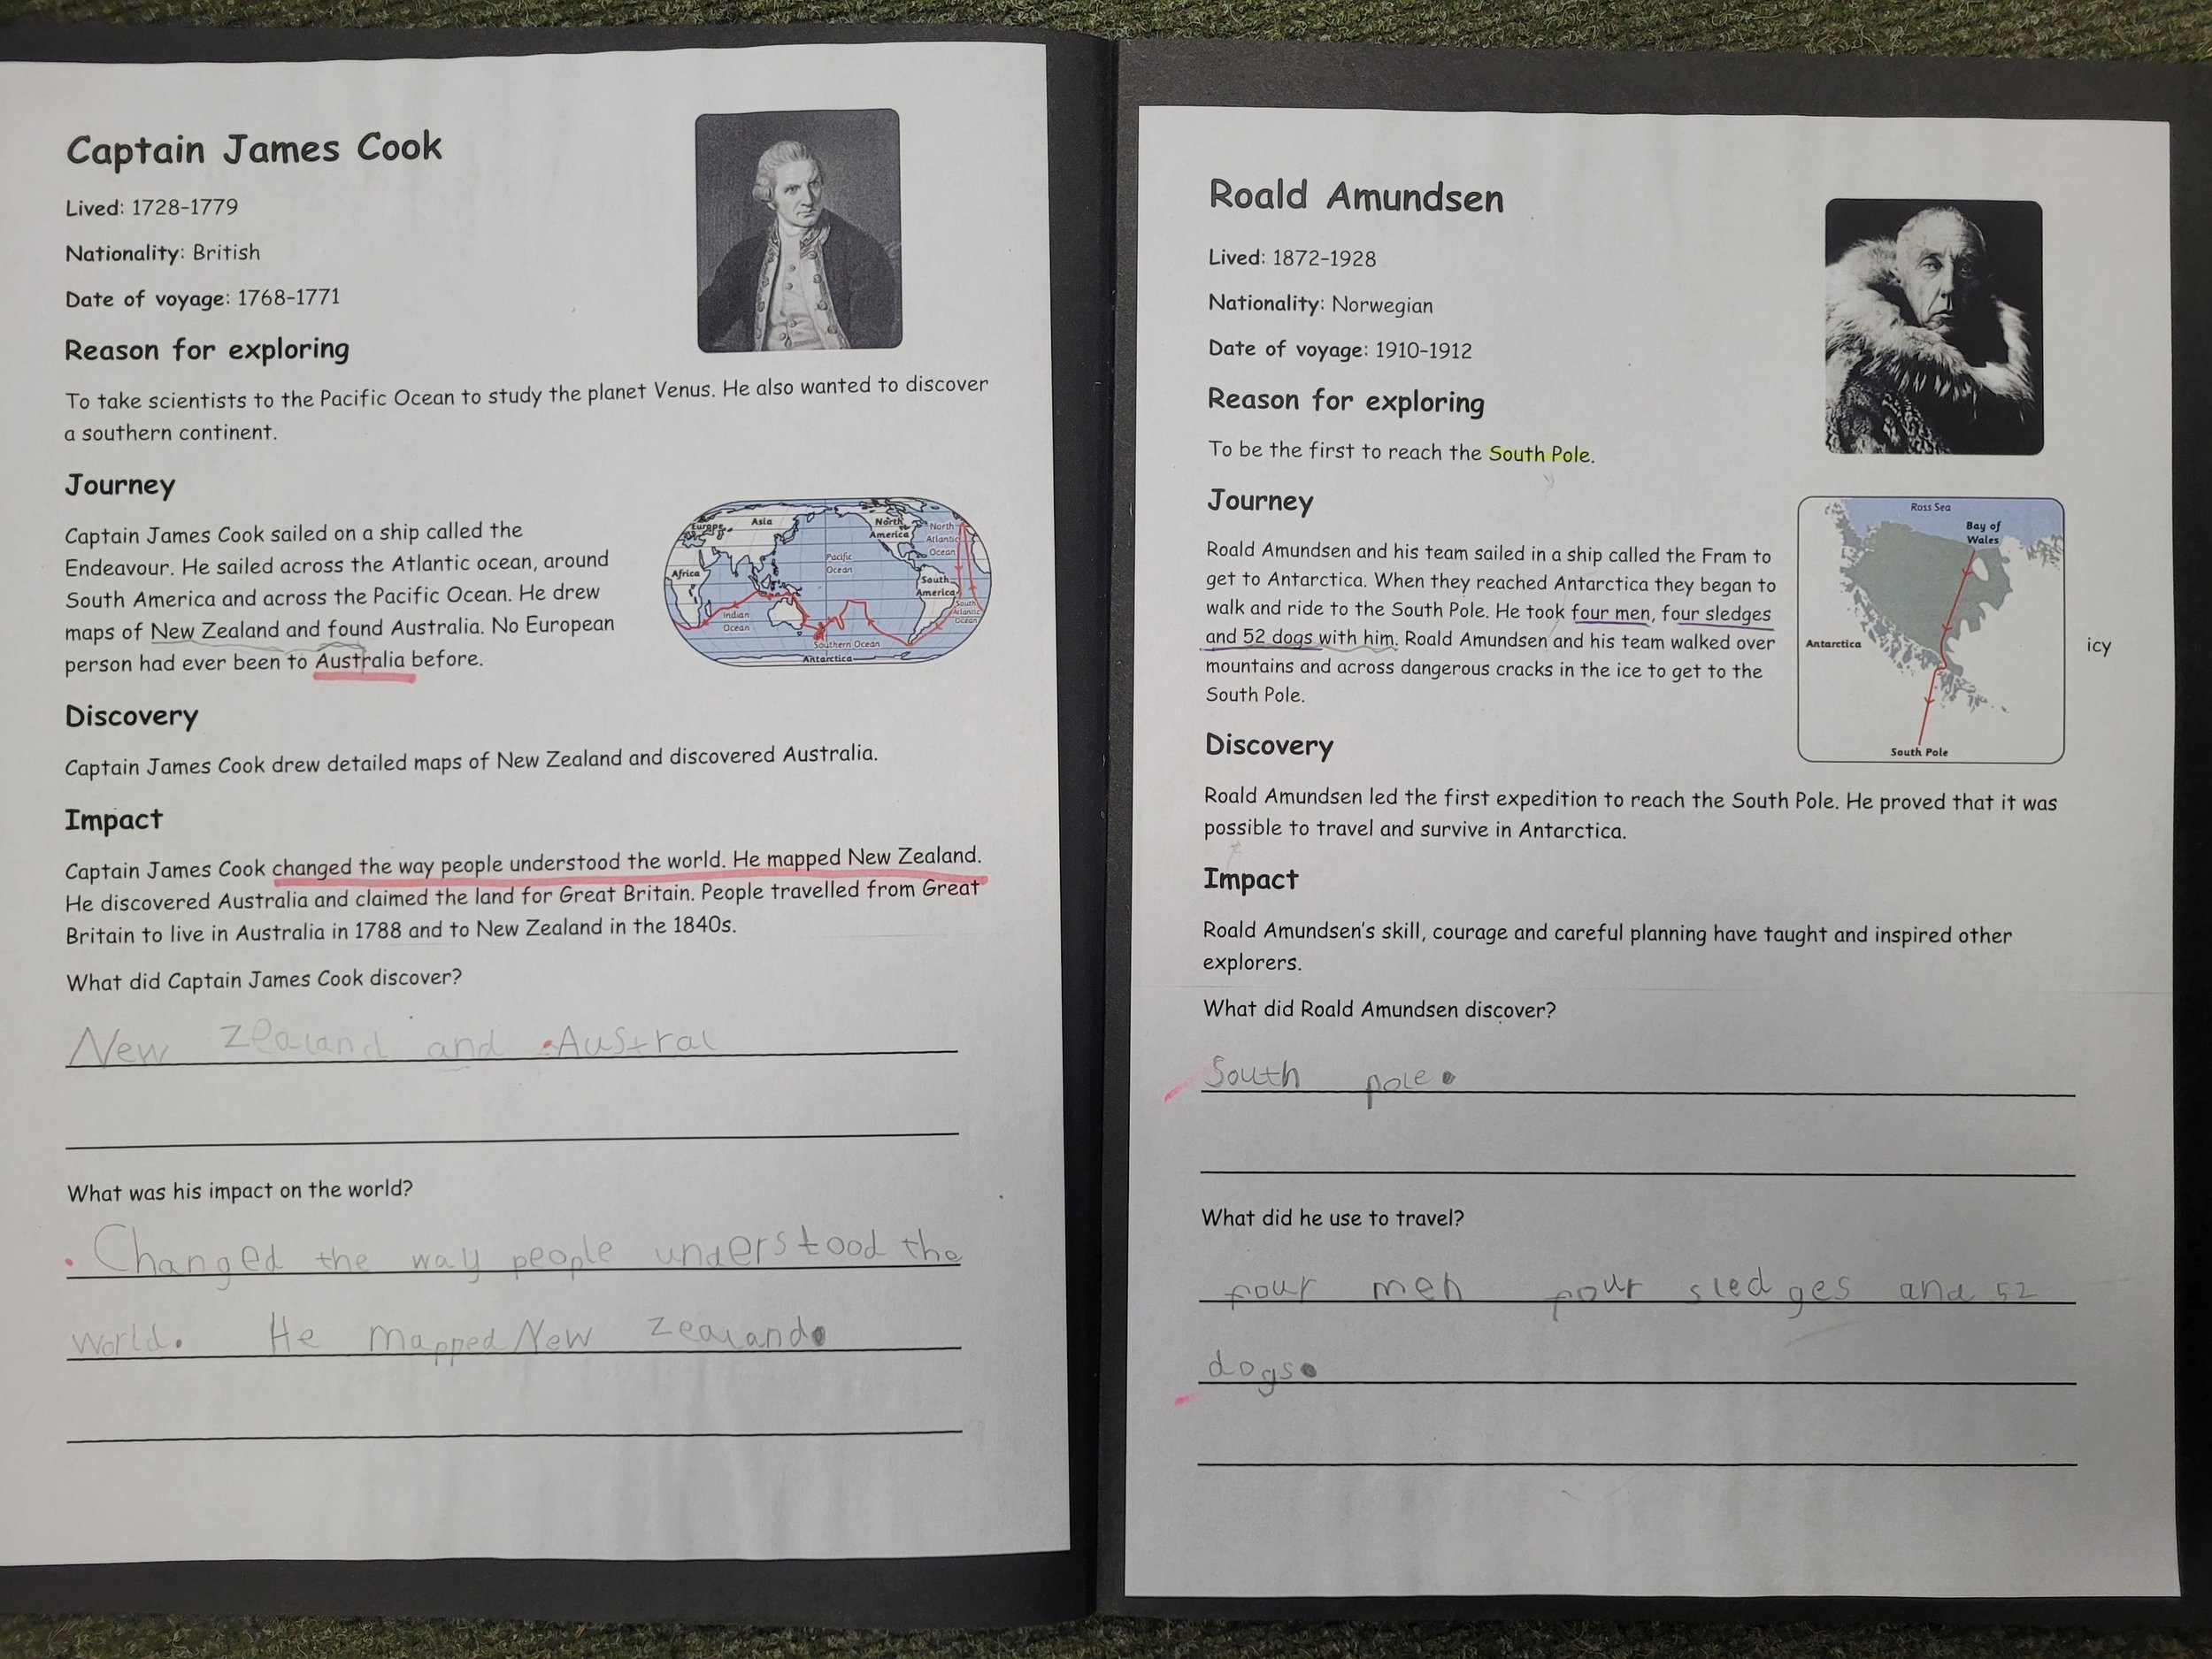 Captain James Cook
Lived: 1728-1779
Nationality: British
Date of voyage: 1768-1771
Reason for exploring
To take scientists to the Pacific Ocean to study the planet Venus. He also wanted to discover
a southern continent.
Journey
Captain James Cook sailed on a ship called the
Endeavour. He sailed across the Atlantic ocean, around
South America and across the Pacific Ocean. He drew
maps of New Zealand and found Australia. No European
person had ever been to Australia before.
Europe
Asia
North
America
North
Atlantic
Ocean
Pacific
Ocean
Africa
South
America
South
Atlantic
Ocean
Indian
Ocean
Southern Ocean
Antarctica
Discovery
Captain James Cook drew detailed maps of New Zealand and discovered Australia.
Impact
Captain James Cook changed the way people understood the world. He mapped New Zealand.
He discovered Australia and claimed the land for Great Britain. People travelled from Great
Britain to live in Australia in 1788 and to New Zealand in the 1840s.
What did Captain James Cook discover?
New Zealand and Austral
What was his impact on the world?
Changed the way people understood the
world. He mapped New Zealand.
Roald Amundsen
Lived: 1872-1928
Nationality: Norwegian
Date of voyage: 1910-1912
Reason for exploring
To be the first to reach the South Pole.
Journey
Roald Amundsen and his team sailed in a ship called the Fram to
get to Antarctica. When they reached Antarctica they began to
walk and ride to the South Pole. He took four men, four sledges
and 52 dogs with him. Roald Amundsen and his team walked over
mountains and across dangerous cracks in the ice to get to the
South Pole.
Ross Sea
Bay of
Wales
Antarctica
South Pole
icy
Discovery
Roald Amundsen led the first expedition to reach the South Pole. He proved that it was
possible to travel and survive in Antarctica.
Impact
Roald Amundsen's skill, courage and careful planning have taught and inspired other
explorers.
What did Roald Amundsen discover?
South pole.
What did he use to travel?
four men four sledges and 52
dogs.